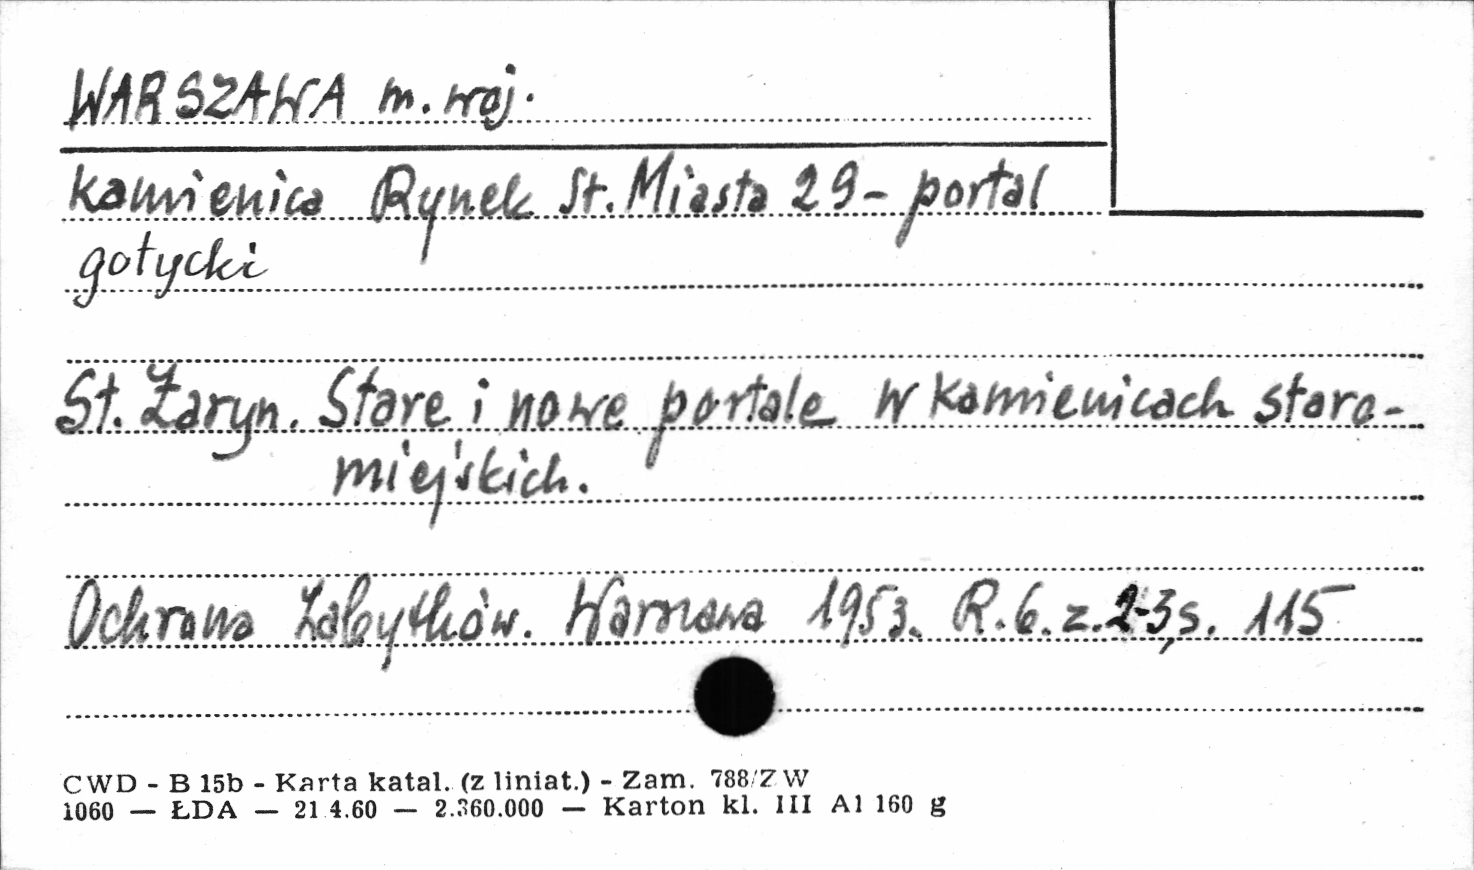 WARSZAWA m. woj.
kamienica Rynek St. Miasta 29 - portal
gotycki
St. Żaryn. Stare i nowe portale w kamienicach staro-
miejskich.
Ochrona Zabytków. Warszawa 1953. R. 6. z. 2-3, s. 115
CWD - B 15b - Karta katal. (z liniat.) - Zam. 788/ZW
1060 — ŁDA — 21.4.60 — 2.360.000 — Karton kl. III A1 160 g